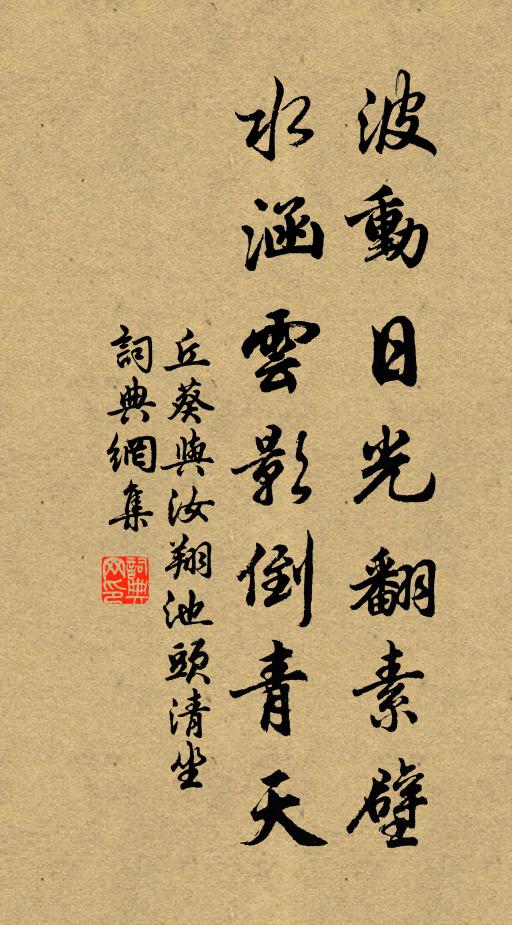 波動日光翻素壁
水涵雲影倒青天
丘葵與汝翔池頭清坐
詞典網集
詞典網印